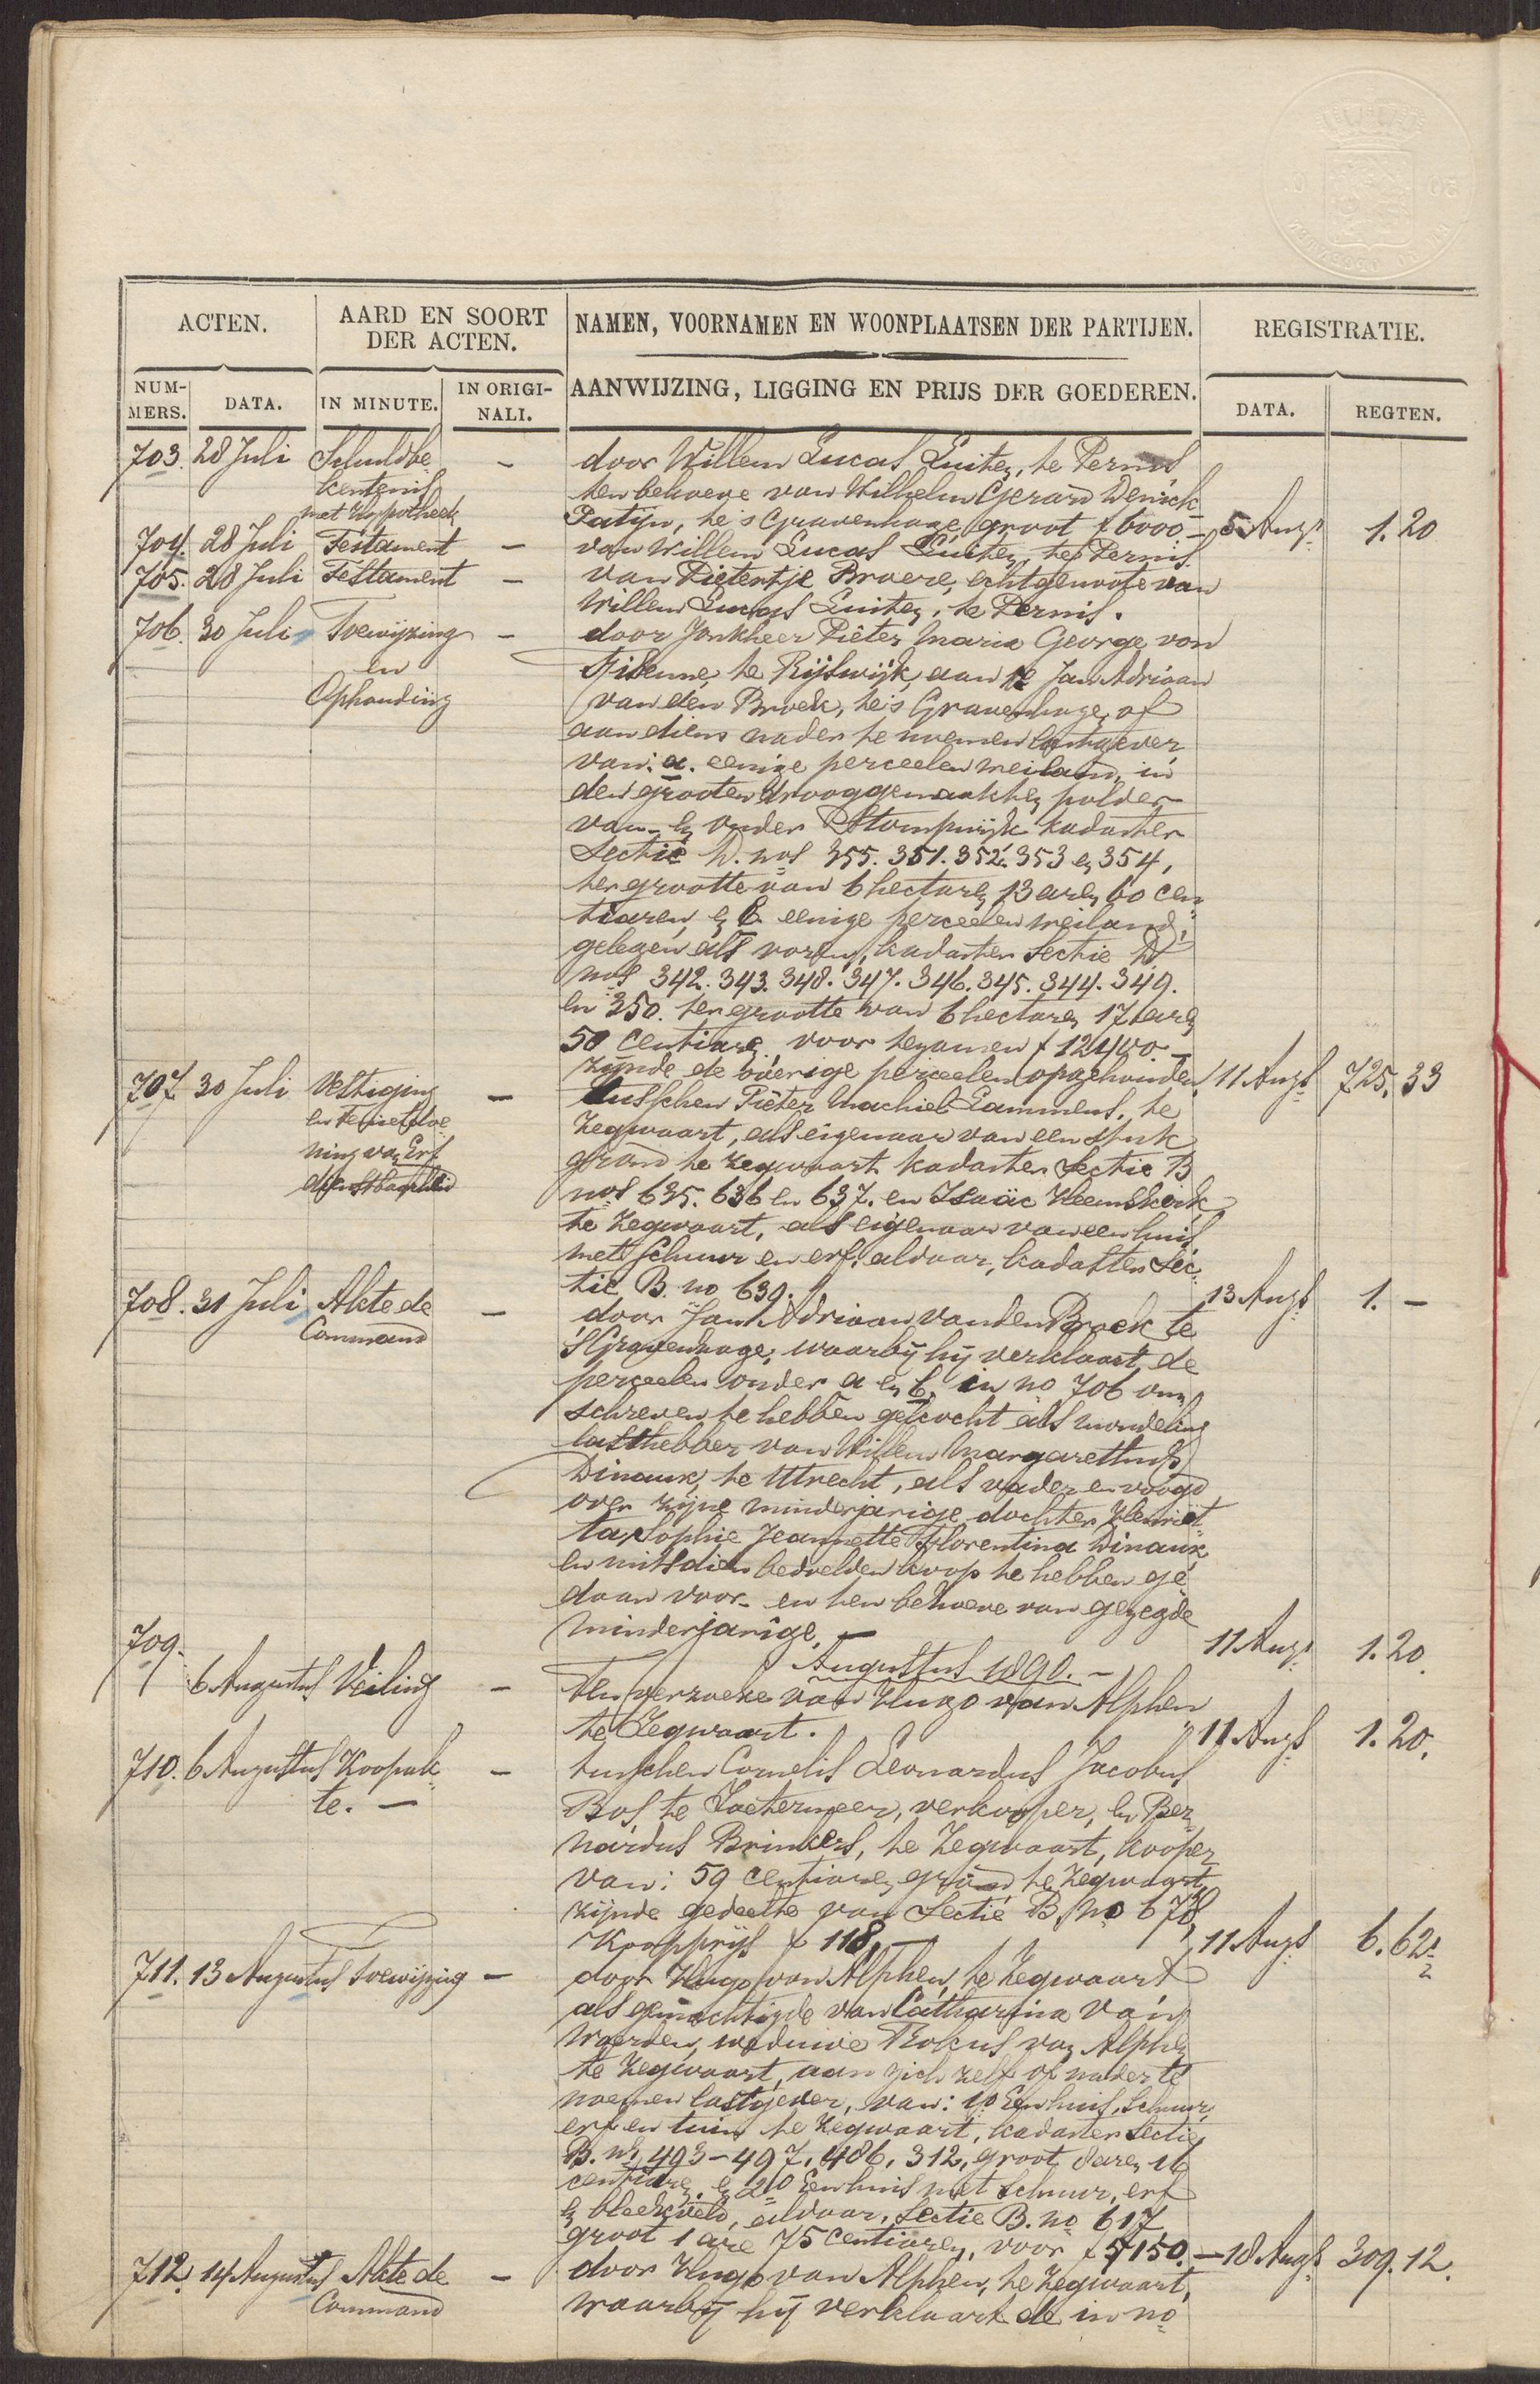 ACTEN.
AARD EN SOORT
DER ACTEN.
NAMEN, VOORNAMEN EN WOONPLAATSEN DER PARTIJEN.
REGISTRATIE.
NUM-
MERS.
DATA.
IN MINUTE.
IN ORIGI-
NALI.
AANWIJZING, LIGGING EN PRIJS DER GOEDEREN.
DATA.
REGTEN.
703. 28 Juli Schuldbe- – door Willem Lucas Luiten, te Pernis
kentenis ten behoeve van Wilhelm Gerard Derick
met Hypotheek Patijn, te 's Gravenhage, groot f 6000.- 5 Augs 1. 20
704. 28 Juli Testament – van Willem Lucas Luiten, te Pernis.
705. 28 Juli Testament – van Pietertje Broere, echtgenoote van
Willem Lucas Luiten, te Pernis.
706. 30 Juli Toewijzing – door Jonkheer Pieter Maria George von
en te Rijswijk, aan Jan Adriaan
Ophouding van den Broek, te 's Gravenhage, of
aan diens nader te noemen lastgever
van: a. eenige perceelen weiland, in
den grooten drooggemaakten polder
van- en onder Stompwijk kadaster
Sectie D. nos 355. 351. 352. 353 en 354,
ter grootte van 6 hectaren 13 aren 60 cen-
tiaren, en b. eenige perceelen weiland,
gelegen als voren, kadaster Sectie D
nos 342. 343. 348. 347. 346. 345. 344. 349.
en 350. ter grootte van 6 hectaren 17 aren
50 centiaren, voor tezamen f 12400.-
zijnde de overige perceelen opgehouden. 11 Augs 725. 33
707 30 Juli Vestiging – tusschen Pieter Machiel Lammens, te
en tenietdoe- Zegwaart, als eigenaar van een stuk
ning van Erf- grond te Zegwaart kadaster Sectie B
dienstbaarheid nos 635. 636 en 637. en Isaäc Heemskerk
te Zegwaart, als eigenaar van een huis
met schuur en erf, aldaar, kadaster Sec-
tie B. no 639. 13 Augs 1. –
708. 31 Juli Akte de – door Jan Adriaan van den Broek te
Command 's Gravenhage, waarbij hij verklaart de
perceelen onder a en b. in no 706 om-
schreven te hebben gekocht als mondeling
lasthebber van Willem Margarethus
Dinaux, te Utrecht, als vader en voogd
over zijne minderjarige dochter Henriet-
ta Sophie Jeannette Florentina Dinaux
en mitsdien bedoelden koop te hebben ge-
daan voor- en ten behoeve van gezegde
minderjarige. – 11 Augs 1. 20
709. Augustus 1890. –
6 Augustus Veiling – Ten verzoeke van Hugo van Alphen
te Zegwaart. 11 Augs 1. 20.
710. 6 Augustus Koopak- – tusschen Cornelis Leonardus Jacobus
te. – Bos, te Zoetermeer, verkooper, en Ber-
nardus Brinkers, te Zegwaart, kooper
van: 59 centiaren grond te Zegwaart,
zijnde gedeelte van Sectie B. no 678,
Koopprijs f 118,– 11 Augs 6. 62½
711. 13 Augustus Toewijzing – door Hugo van Alphen, te Zegwaart
als gemachtigde van Catharina van
Woerden, weduwe Rokus van Alphen
te Zegwaart, aan zich zelf of nader te
noemen lastgever, van: 1o Een huis, schuur,
erf en tuin te Zegwaart, kadaster Sectie
B. nos 493–497, 486, 312, groot 8 aren 16
centiaren, en 2o Een huis met schuur, erf
en bleekveld, aldaar, Sectie B. no 617
groot 1 are 75 centiaren, voor f 5150. – 18 Augs 309. 12.
712. 14 Augustus Akte de – door Hugo van Alphen, te Zegwaart,
Command waarbij hij verklaart de in no